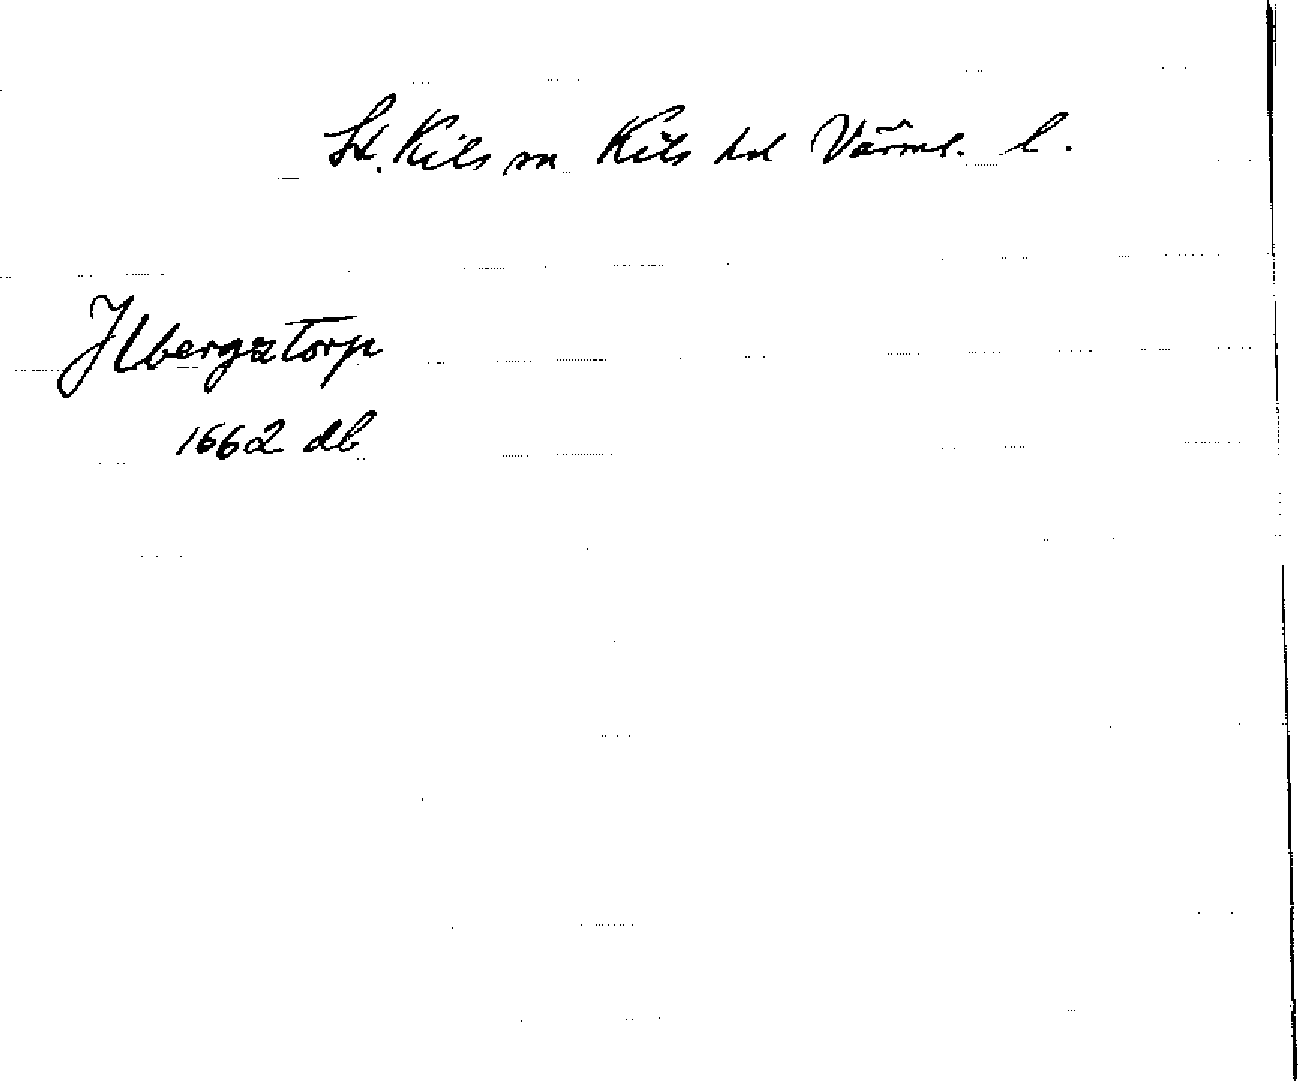 St. Kils sn Kils hd Värml. l.
Ilbergstorp
1662 db